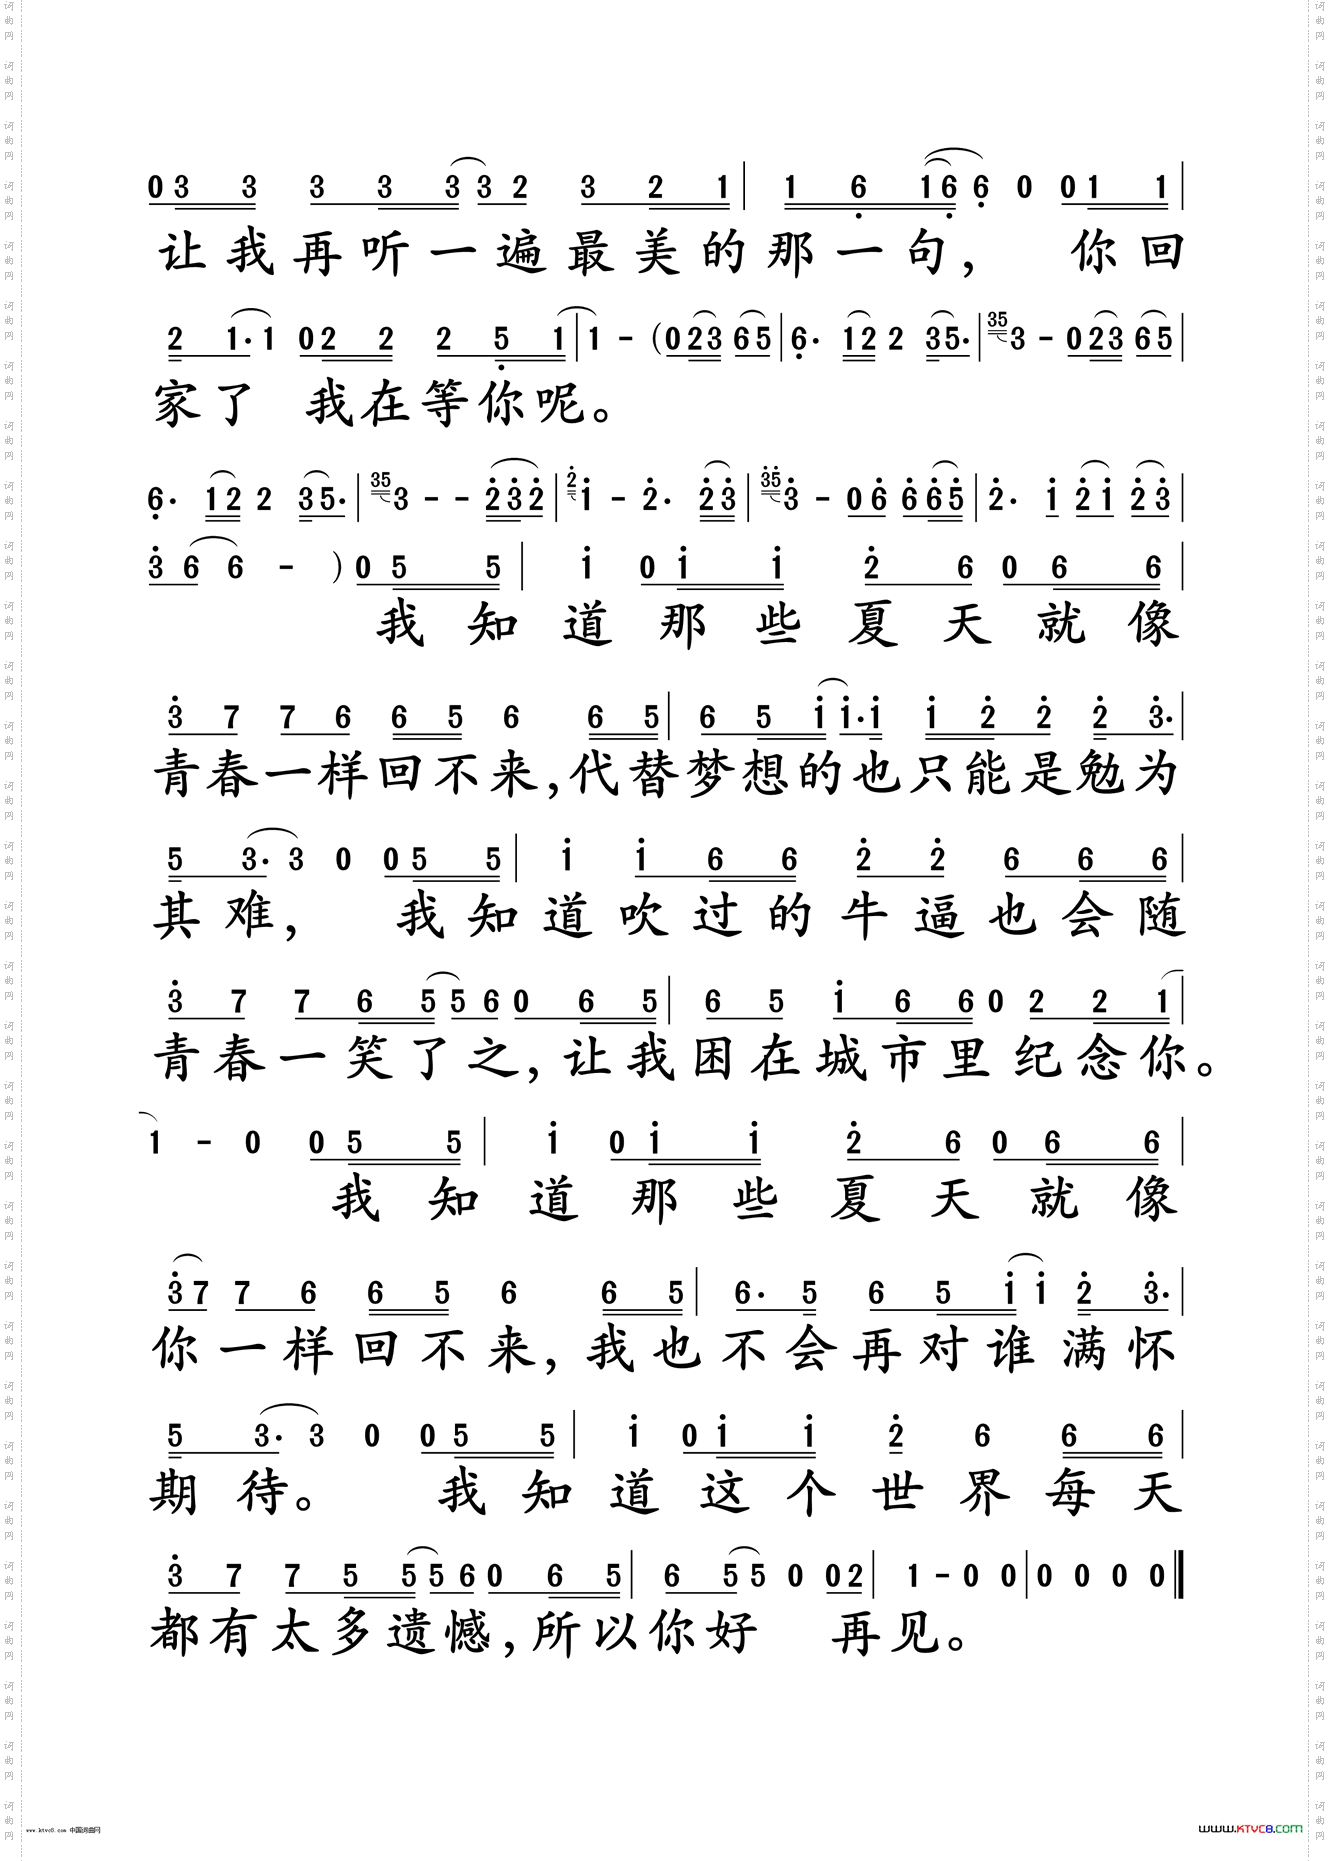 0 3 3 3 3 3 3 2 3 2 1 | 1 6 1 6 6 0 0 1 1 |
让我再听一遍最美的那一句， 你回
2 1· 1 0 2 2 2 5 1 | 1 - (0 2 3 6 5 | 6· 1 2 2 3 5· | 35 3 - 0 2 3 6 5 |
家了 我在等你呢。
6· 1 2 2 3 5· | 35 3 - - 2 3 2 | 2 1 - 2· 2 3 | 35 3 - 0 6 6 6 5 | 2· 1 2 1 2 3 |
3 6 6 - ) 0 5 5 | 1 0 1 1 2 6 0 6 6 |
我知道那些夏天就像
3 7 7 6 6 5 6 6 5 | 6 5 1 1· 1 1 2 2 2 3· |
青春一样回不来,代替梦想的也只能是勉为
5 3· 3 0 0 5 5 | 1 1 6 6 2 2 6 6 6 |
其难， 我知道吹过的牛逼也会随
3 7 7 6 5 5 6 0 6 5 | 6 5 1 6 6 0 2 2 1 |
青春一笑了之,让我困在城市里纪念你。
1 - 0 0 5 5 | 1 0 1 1 2 6 0 6 6 |
我知道那些夏天就像
3 7 7 6 6 5 6 6 5 | 6· 5 6 5 1 1 2 3· |
你一样回不来,我也不会再对谁满怀
5 3· 3 0 0 5 5 | 1 0 1 1 2 6 6 6 |
期待。 我知道这个世界每天
3 7 7 5 5 5 6 0 6 5 | 6 5 5 0 0 2 | 1 - 0 0 | 0 0 0 0 ‖
都有太多遗憾,所以你好 再见。
www.ktvc8.com 中国词曲网
www.KTVC8.COM